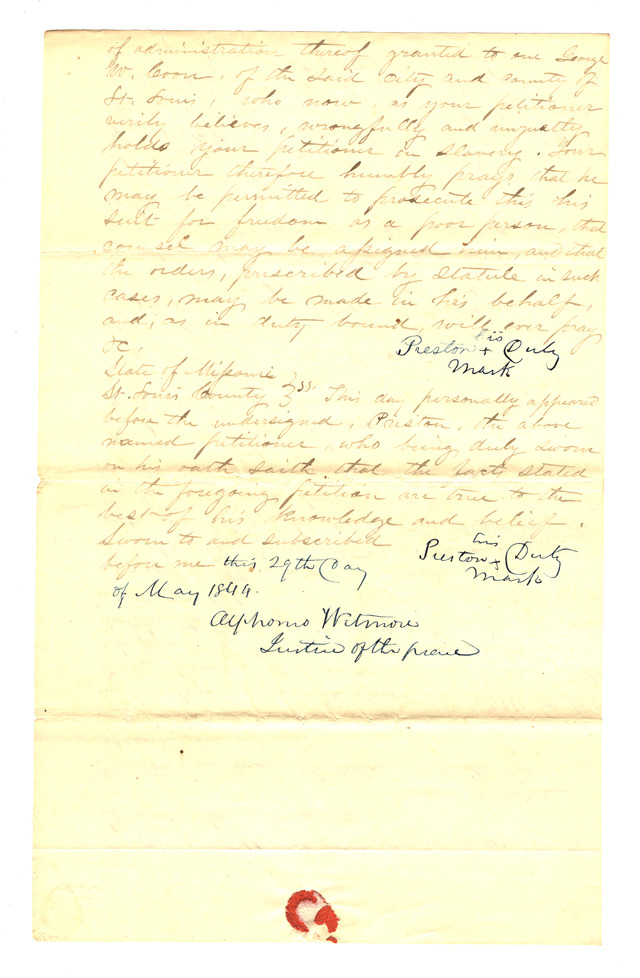 of administration thereof granted to one George
W. Coon, of the said city and county of
St. Louis, who now, as your petitioner
verily believes, wrongfully and unjustly
holds your petitioner in slavery. Your
petitioner therefore humbly prays that he
may be permitted to prosecute this his
suit for freedom as a poor person, that
counsel may be assigned him, and that
the orders, prescribed by statute in such
cases, may be made in his behalf,
and, as in duty bound, will ever pray
&c.
his
Preston + Duty
Mark
State of Missouri
St. Louis County } ss. This day personally appeared
before the undersigned, Preston, the above
named petitioner, who being duly sworn
on his oath saith that the facts stated
in the foregoing petition are true to the
best of his knowledge and belief.
Sworn to and subscribed
before me this 29th Day
of May 1844.
his
Preston + Duty
Mark
Alphonso Wetmore
Justice of the peace